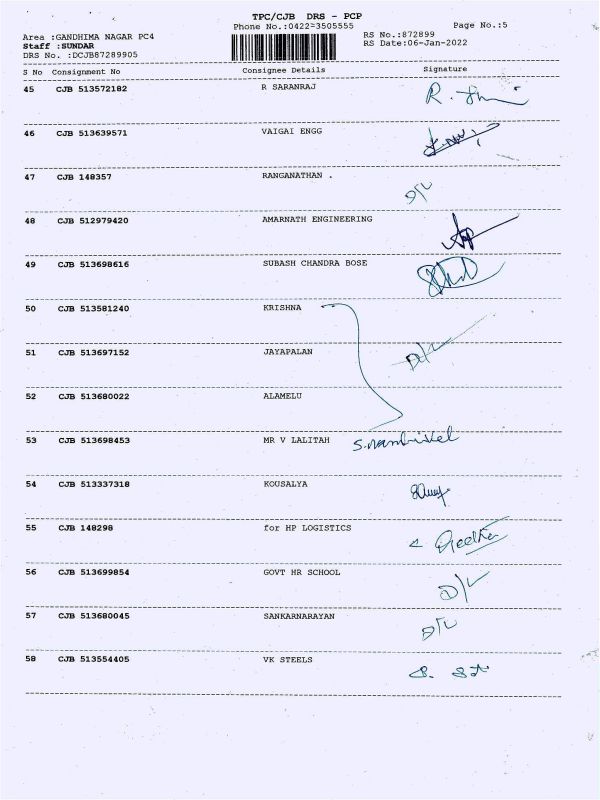 TPC/CJB DRS - PCP
Phone No.:0422-3505555
Page No.:5
Area :GANDHIMA NAGAR PC4
RS No.:872899
Staff :SUNDAR
RS Date:06-Jan-2022
DRS No. :DCJB87289905
S No Consignment No Consignee Details Signature
45 CJB 513572182 R SARANRAJ
46 CJB 513639571 VAIGAI ENGG
47 CJB 148357 RANGANATHAN . D/L
48 CJB 512979420 AMARNATH ENGINEERING
49 CJB 513698616 SUBASH CHANDRA BOSE
50 CJB 513581240 KRISHNA
51 CJB 513697152 JAYAPALAN D/L
52 CJB 513680022 ALAMELU
53 CJB 513698453 MR V LALITAH
54 CJB 513337318 KOUSALYA
55 CJB 148298 for HP LOGISTICS Geetha
56 CJB 513699854 GOVT HR SCHOOL D/L
57 CJB 513680045 SANKARNARAYAN D/L
58 CJB 513554405 VK STEELS